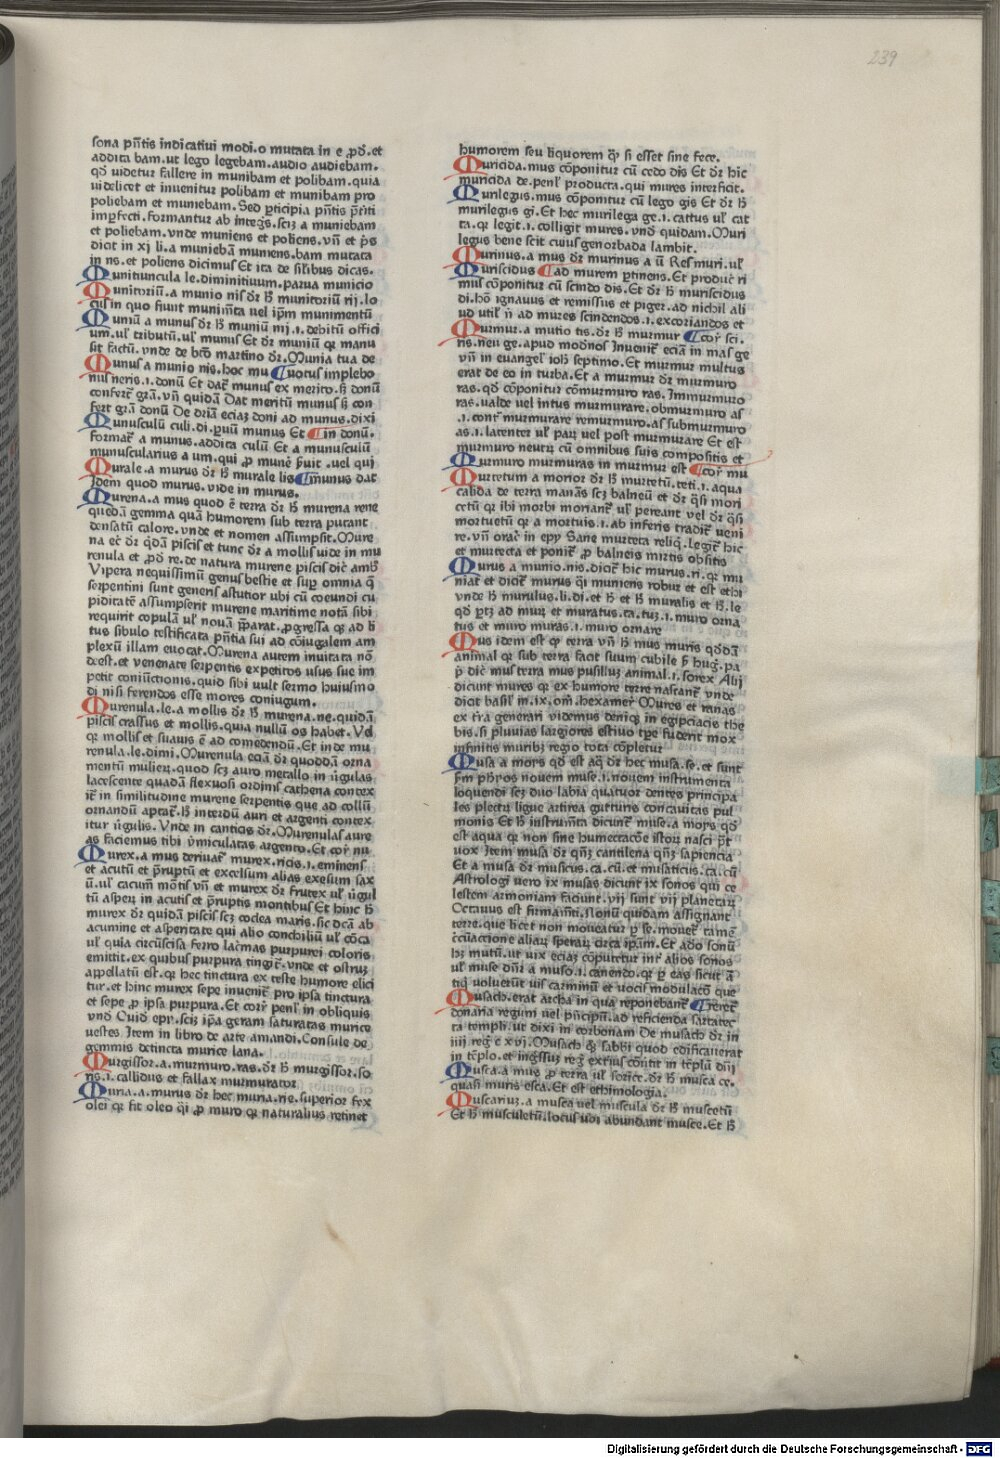 239
sona pn̄tis indicatiui modi.o mutata in e ꝓd̄.et
addita bam.ut lego legebam.audio audiebam.
qd̄ uidetur fallere in munibam et polibam.quia
uidelicet et inuenitur polibam et munibam pro
poliebam et muniebam. Sed p̱ticipia pn̄tis p̄t̄iti
imꝑfecti.formantur ab integ̊s.scꝫ a muniebam
et poliebam.vnde muniens et poliens.vn̄ et p̊s
dicit in xj li.a muniebā muniens.bam mutata
in ns.et poliens dicimus Et ita de sil̄ibus dicas.
Munitiuncula le.diminitiuum.parua municio
Munitoriū.a munio nis dr̄ h̄ munitoriū rij.lo
cus in quo fiunt munim̄ta uel ip̄m munimentū
Muniū a munus dr̄ h̄ muniū nij.i.debitū offici
um.ul̓ tributū.ul̓ munus Et dr̄ muniū qr̄ manu
sit factū.vnde de br̄o martino dr̄.Munia tua de
Munus a munio nis.hoc mu ¶uotus implebo
nus neris.i.donū Et dat̄ munus ex merito.s̄ donū
confert̄ gr̄a.vn̄ quidā Dat meritū munus s̄ con
fert gr̄a donū De dr̄ia eciaꝫ doni ad munus.dixi
Munusculū culi.di.ꝑuū munus Et ¶in donū.
format̄ a munus.addita culū Et a munusculū
munuscularius a um.qui ꝓ mune̓ s̓uit.uel qui
Murale.a murus dr̄ h̄ murale lis ¶munus dat
Idem quod murus.vide in murus.
Murena.a mus quod ē terra dr̄ h̄ murena rene
quedā gemma quā humorem sub terra putant
densatū calore.vnde et nomen assumpsit.Mure
na ec̄ dr̄ q̄dā piscis et tunc dr̄ a mollis uide in mu
renula et ꝓd̄ re.de natura murene piscis dic̄ amb̓
Vipera nequissimū genus bestie et suꝑ omnia q̄
serpentini sunt generis astutior ubi cū coeundi cu
piditatē assumpserit murene maritime notā sibi
requirit copulā ul̓ nouā p̄parat.ꝓgressa qꝫ ad li
tus sibulo testificata pn̄tia sui ad cōiugalem am
plexū illam euocat.Murena autem inuitata nō
deest.et venenate serpentis expetitos usus sue im
petit coniūctionis.quid sibi uult sermo huiusmo
di nisi ferendos esse mores coniugum.
Murenula.le.a mollis dr̄ h̄ murena.ne.quidā
piscis crassus et mollis.quia nullū os habet.Vel
qr̄ mollis et suauis ē ad comedendū.Et inde mu
renula.le.dimi.Murenula eciā dr̄ quoddā orna
mentū mulieꝝ.quod scꝫ auro metallo in uirgulas
lacescente quadā flexuosi ordinis cathena contex
it̄ in similitudine murene serpentis que ad collū
ornandū aptat̄.h̄ interdū auri et argenti contex
itur uirgulis.Vnde in canticis dr̄.Murenulas aure
as faciemus tibi v̓miculatas argento.Et cor̓ nu
Murex.a mus deriuat̄ murex.ricis.i.eminens
et acutū et p̄ruptū et excelsum alias exesum sax
ū.ul̓ cacum̄ mōtis vn̄ et murex dr̄ frutex ul̓ uirgul
tū asperꝫ in acutis et p̄ruptis montibus Et hinc h̄
murex dr̄ quidā piscis scꝫ coclea maris.sic dc̄a ab
acumine et asperitate qui alio conchiliū ul̓ cōca
ul̓ quia circūscisa ferro lac̓mas purpurei coloris
emittit.ex quibus purpura tingit̄.vnde et ostruꝫ
appellatū est.qr̄ hec tinctura ex teste humore elici
tur.et hinc murex sepe inuenit̄ pro ipsa tinctura
et sepe ꝓ ipsa purpura.Et corr̓ penl̓ in obliquis
vnd̓ Ouid̓ epr̄.scꝫ ip̄a geram saturatas murice
uestes Item in libro de arte amandi.Consule de
gemmis detincta murice lana.
Murgissor.a.murmuro.ras.dr̄ h̄ murgissor.so
ris.i.callidus et fallax murmurator
Muria.a.murus dr̄ hec muria.rie.superior fex
olei qr̄ fit oleo q̄i ꝓ muro qr̄ naturalius retinet
humorem seu liquorem q̄ȝ si esset sine fece.
Muricida.mus cōponitur cū cedo dis Et dr̄ hic
muricida de.penl̓ producta.qui mures interficit.
Murilegus.mus cōponitur cū lego gis Et dr̄ h̄
murilegus gi.Et hec murilega ge.i.cattus ul̓ cat
ta.qr̄ legit.i.colligit mures.vnd̓ quidam.Muri
legus bene scit cuius genorbada lambit.
Murinus.a mus dr̄ murinus a ū Res muri.ul̓
Muriscidus ¶ad murem ꝑtinens.Et produc̄ ri
mus cōponitur cū scindo dis.Et dr̄ h̄ muriscidus
di.hō ignauus et remissus et piger.ad nichil ali
ud util̓ n̄ ad mures scindendos.i.excoriandos et
Murmur.a mutio tis.dr̄ h̄ murmur ¶cor̓ sci.
ris.neu ge.apud mod̓nos Inuenit̄ eciā in mas ge
vn̄ in euangel̓ ioh̄ septimo.Et murmur multus
erat de eo in turba.Et a murmur dr̄ murmuro
ras.qd̄ cōponitur cōmurmuro ras.Immurmuro
ras.ualde uel intus murmurare.obmurmuro as
.i.contr̄ murmurare remurmuro.as submurmuro
as.i.latenter ul̓ paꝝ uel post murmurare Et est
murmuro neutꝝ cū omnibus suis compositis et
Murmuro murmuras in murmur est ¶cor̓ mu
Murtetum a morior dr̄ h̄ murtetū.teti.i.aqua
calida de terra manās scꝫ balneū et dr̄ q̄si mori
cetū qr̄ ibi morbi moriant̄ ul̓ pereant vel dr̄ q̄si
mortuetū qr̄ a mortuis.i.ab inferis tradit̄ ueni
re.vn̄ orac̄ in epy Sane murteta reliq̄.legit̄ hic
et murtecta et ponit̄ ꝓ balneis mirtis obsitis
Murus a munio.nis.dicit̄ hic murus.ri.qr̄ mu
niat̄ et dicit̄ murus q̄i muniens robur et est ethi
vnde h̄ murulus.li.di.et h̄ et h̄ muralis et h̄.le
qd̄ ꝑtꝫ ad muꝝ et muratus.ta.tuꝫ.i.muro orna
tus et muro muras.i.muro ornare
Mus idem est qd̄ terra vn̄ h̄ mus muris q̄ddā
animal qr̄ sub terra facit suum cubile s̓ hug̓.pa
p̄ dic̄ mus terra mus pusilluꝫ animal.i.sorex Alij
dicunt mures qr̄ ex humore terre nascant̄ vnde
dicit basil̓ in.ix.om̄.hexamer̄ Mures et ranas
ex tr̄a generari videmus deniqꝫ in egipciacis the
bis.si pluuias largiores estiuo tꝑe fuderit mox
infinitis muribꝫ regio tota cōpletur
Musa a mors qd̄ est aq̄ dr̄ hec musa.se.et sunt
s̄m ph̄ros nouem muse.i.nouem instrumenta
loquendi scꝫ duo labia quatuor dentes principa
les plectrꝫ ligue artirea gutturis concauitas pul
monis Et h̄ instrum̄ta dicunt̄ muse.a mors qd̄
est aqua qr̄ non sine humectacōe istoꝝ nasci pt̄
uox Item musa dr̄ qn̄ꝫ cantilena qn̄ꝫ sapiencia
Et a musa dr̄ musicus.ca.cū.et musaticus.ca.cū
Astrologi uero ix musas dicunt ix sonos qui ce
lestem armoniam faciunt.vij sunt vij planetaꝝ
Octauus est firmam̄ti.s̄ ionū quidam assignant
terre.que licet non moueatur ꝑ se.mouet̄ tamē
c̄cūaccione aliaꝝ speraꝝ circa ip̄am.Et adeo sonū
h̄ꝫ mutū.ut uix eciaꝫ cōputetur int̓ alios sonos
ul̓ muse dn̄r a muso.i.canendo.qr̄ ꝑ eas sicut ā
tiq̄ voluerūt uis carminū et uocis modulacō que
Musach.erat archa in qua reponebant̄ ¶reret̄
donaria regum uel pn̄cipū.ad reficienda sartatec
ta templi.ut dixi in corbonam De musach dr̄ in
iiij reg̓ c xvj.Musach qꝫ sabbi quod edificauerat
in tēplo.et ing̓ssuꝫ reg̓ exti̓us cōu̓tit in tēplū dn̄i
Musca.a mus ꝓ terra ul̓ sorice.dr̄ h̄ musca ce.
quasi muris esca.Et est ethimologia.
Muscarius.a musca uel muscula dr̄ h̄ muscetū
Et h̄ musculetū.locus ubi abundant musce.Et h̄
Digitalisierung gefördert durch die Deutsche Forschungsgemeinschaft - DFG